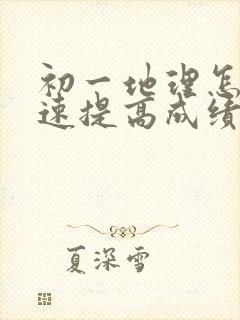 初一地理怎
速提高成绩
夏深雪